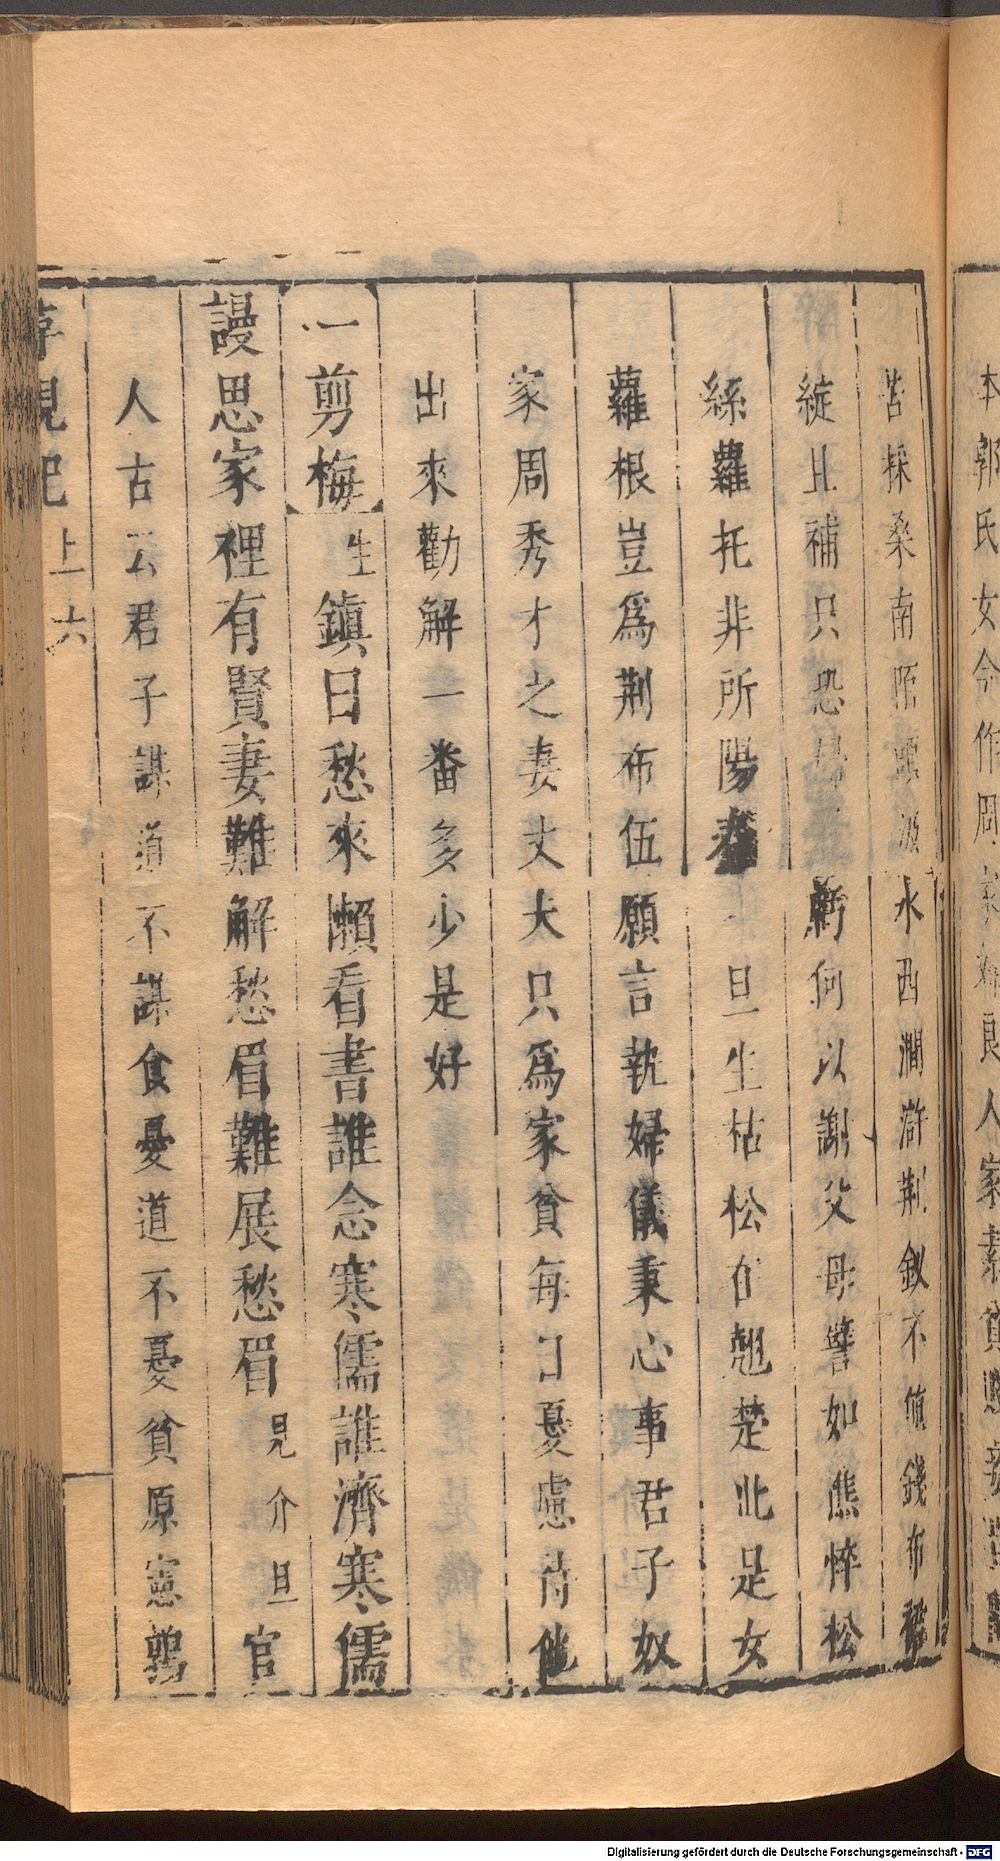 本郭氏女今作周家婦良人家素貧
苦採桑南陌頭汲水西澗滸荆釵不値錢布裙
綻且補只恐歸何以謝父母譬如樵悴松
絲蘿托非所陽春 旦生枯松在翹楚此是女
蘿根豈爲荆布伍願言執婦儀秉心事君子奴
家周秀才之妻丈夫只爲家貧每日憂慮待他
出來勸解一番多少是好
一剪梅 生鎮日愁來懶看書誰念寒儒誰濟寒儒
謾思家裡有賢妻難解愁眉難展愁眉 見介 旦官
人古云君子謀道不謀食憂道不憂貧原憲鶉
尋親記 上 六
Digitalisierung gefördert durch die Deutsche Forschungsgemeinschaft - DFG